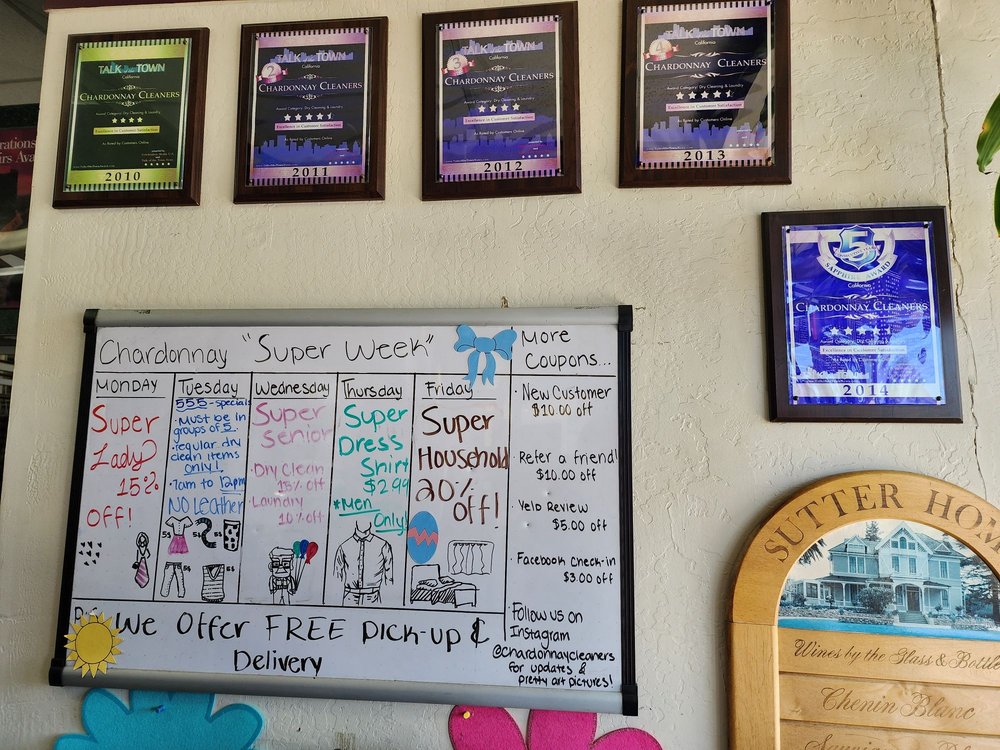 TALK of the TOWN
California
CHARDONNAY CLEANERS
Award Category: Dry Cleaning & Laundry
Excellence in Customer Satisfaction
As Rated by Customers Online
2010
TALK of the TOWN
California
2
CHARDONNAY CLEANERS
Award Category: Dry Cleaning & Laundry
Excellence in Customer Satisfaction
As Rated by Customers Online
2011
TALK of the TOWN
California
3
CHARDONNAY CLEANERS
Award Category: Dry Cleaning & Laundry
Excellence in Customer Satisfaction
As Rated by Customers Online
2012
TALK of the TOWN
California
4
CHARDONNAY CLEANERS
Award Category: Dry Cleaning & Laundry
Excellence in Customer Satisfaction
As Rated by Customers Online
2013
5
SAPPHIRE AWARD
California
CHARDONNAY CLEANERS
Award Category: Dry Cleaning & Laundry
Excellence in Customer Satisfaction
As Rated by Customers Online
TALK of the TOWN
2014
Chardonnay "Super Week"
Monday
Super
Lady
15%
OFF!
Tuesday
555-specials
• Must be in
groups of 5
• regular dry
clean items
only!
• 7am to 12pm
NO Leather
5$
5$
5$
5$
Wednesday
Super
Senior
• Dry Clean
15% off
• Laundry
10% off
Thursday
Super
Dress
Shirt
$2.99
*Men
Only!
Friday
Super
Household
20%
off!
More
Coupons...
• New Customer
$10.00 off
• Refer a friend!
$10.00 off
• Yelp Review
$5.00 off
• Facebook Check-in
$3.00 off
• Follow us on
Instagram
@chardonnaycleaners
for updates &
pretty art pictures!
We Offer FREE Pick-up &
Delivery
SUTTER HOM
Wines by the Glass & Bottle
Chenin Blanc